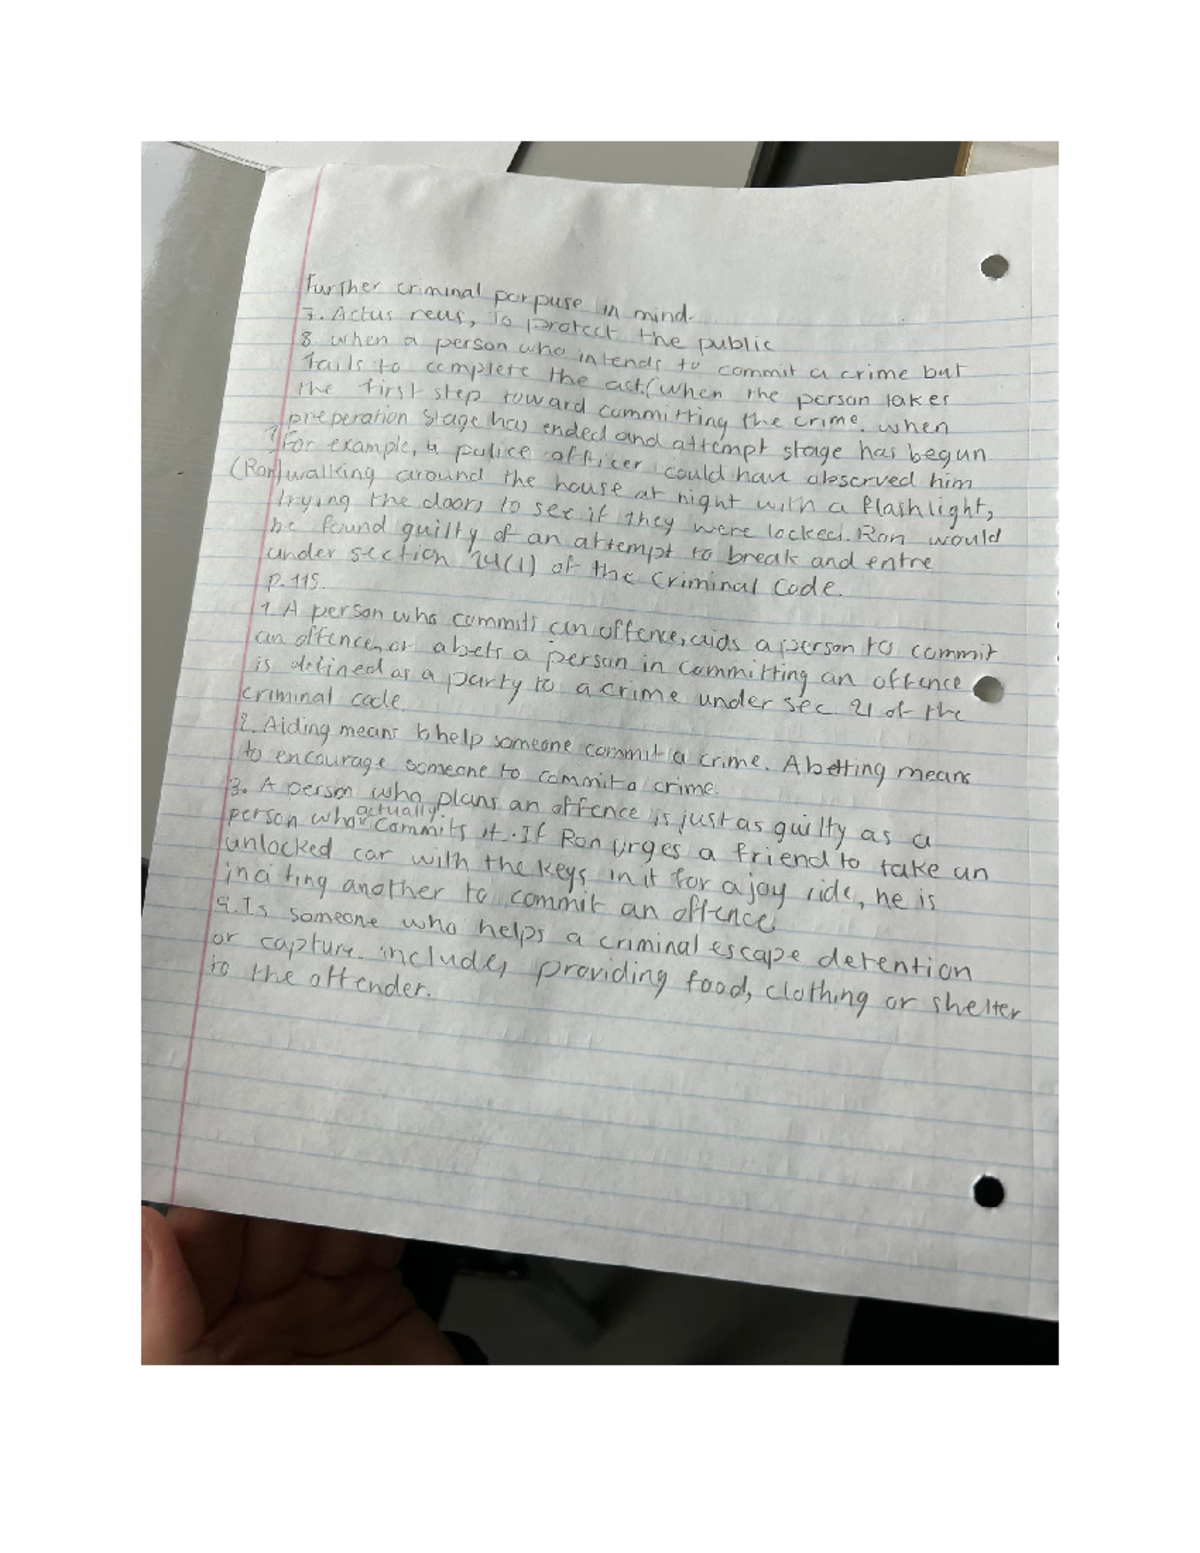 further criminal porpuse in mind.
7. Actus reus, to protect the public
8. when a person who intends to commit a crime but
fails to complete the act. (when the person takes
the first step toward committing the crime. when
preperation stage has ended and attempt stage has begun
For example, a police officer could have observed him
(Ron) walking around the house at night with a flashlight,
trying the doors to see if they were locked. Ron would
be found guilty of an attempt to break and entre
under section 24(1) of the Criminal Code.
p.115.
1. A person who commits an offence, aids a person to commit
an offence, or abets a person in committing an offence
is defined as a party to a crime under sec 21 of the
criminal code.
2. Aiding means to help someone commit a crime. Abetting means
to encourage someone to commit a crime.
3. A person who plans an offence is just as guilty as a
person who actually commits it. If Ron urges a friend to take an
unlocked car with the keys in it for a joy ride, he is
inciting another to commit an offence
4. Is someone who helps a criminal escape detention
or capture. includes providing food, clothing or shelter
to the offender.